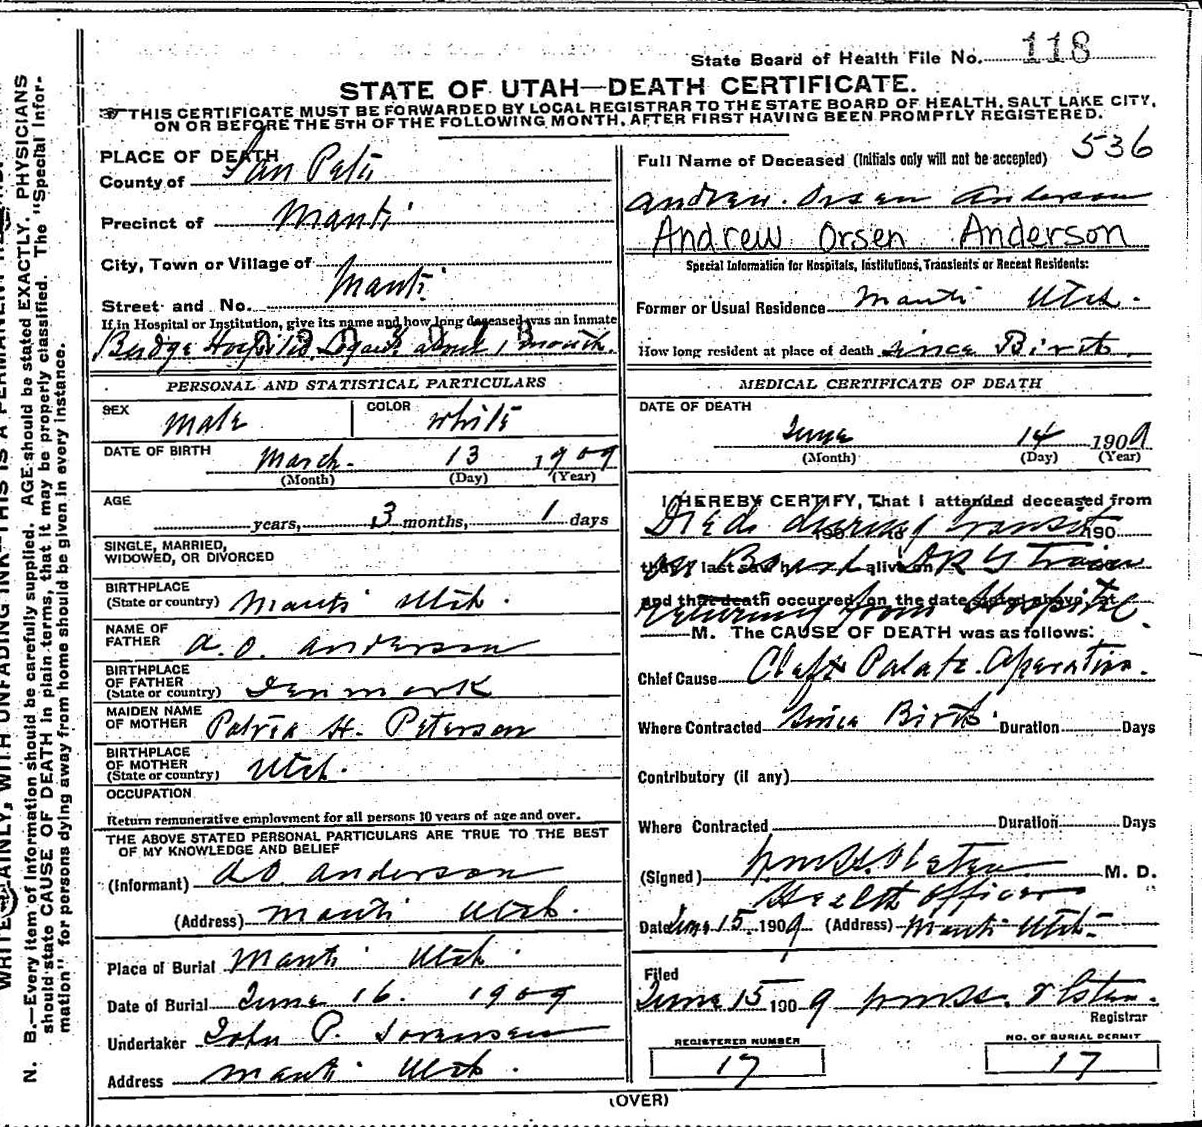 State Board of Health File No. 118
STATE OF UTAH—DEATH CERTIFICATE.
THIS CERTIFICATE MUST BE FORWARDED BY LOCAL REGISTRAR TO THE STATE BOARD OF HEALTH, SALT LAKE CITY,
ON OR BEFORE THE 5TH OF THE FOLLOWING MONTH, AFTER FIRST HAVING BEEN PROMPTLY REGISTERED.
PLACE OF DEATH
County of San Pete
Precinct of Manti
City, Town or Village of Manti
Street and No.
If in Hospital or Institution, give its name and how long deceased was an Inmate
Hospital Logan about 1 month.
PERSONAL AND STATISTICAL PARTICULARS
SEX male COLOR white
DATE OF BIRTH March 13 1909
(Month) (Day) (Year)
AGE years, 3 months, 1 days
SINGLE, MARRIED,
WIDOWED, OR DIVORCED
BIRTHPLACE
(State or country) Manti Utah.
NAME OF
FATHER A. O. Anderson
BIRTHPLACE
OF FATHER
(State or country) Denmark
MAIDEN NAME
OF MOTHER H. Peterson
BIRTHPLACE
OF MOTHER
(State or country) Utah.
OCCUPATION
Return remunerative employment for all persons 10 years of age and over.
THE ABOVE STATED PERSONAL PARTICULARS ARE TRUE TO THE BEST
OF MY KNOWLEDGE AND BELIEF
(Informant) A O. Anderson
(Address) Manti Utah.
Place of Burial Manti Utah.
Date of Burial June 16. 1909
Undertaker John P. Sorensen
Address Manti Utah.
Full Name of Deceased (Initials only will not be accepted) 536
Andrew Orsen Anderson
Andrew Orsen Anderson
Special Information for Hospitals, Institutions, Transients or Recent Residents:
Former or Usual Residence Manti Utah.
How long resident at place of death Since Birth
MEDICAL CERTIFICATE OF DEATH
DATE OF DEATH
June 14 1909
(Month) (Day) (Year)
I HEREBY CERTIFY, That I attended deceased from
Died during transit
190 to 190
on Board train
that I last saw h alive on
and that death occurred, on the date stated above, at
returning from Hospital.
M. The CAUSE OF DEATH was as follows:
Chief Cause Cleft Palate Operation.
Where Contracted Since Birth Duration Days
Contributory (if any)
Where Contracted Duration Days
(Signed) M. D.
Health Officer
Date June 15, 1909 (Address) Manti Utah
Filed
June 15 1909
Registrar
REGISTERED NUMBER
17
NO. OF BURIAL PERMIT
17
(OVER)
N. B.—Every item of information should be carefully supplied. AGE should be stated EXACTLY. PHYSICIANS
should state CAUSE OF DEATH in plain terms, that it may be properly classified. The "Special Infor-
mation" for persons dying away from home should be given in every instance.